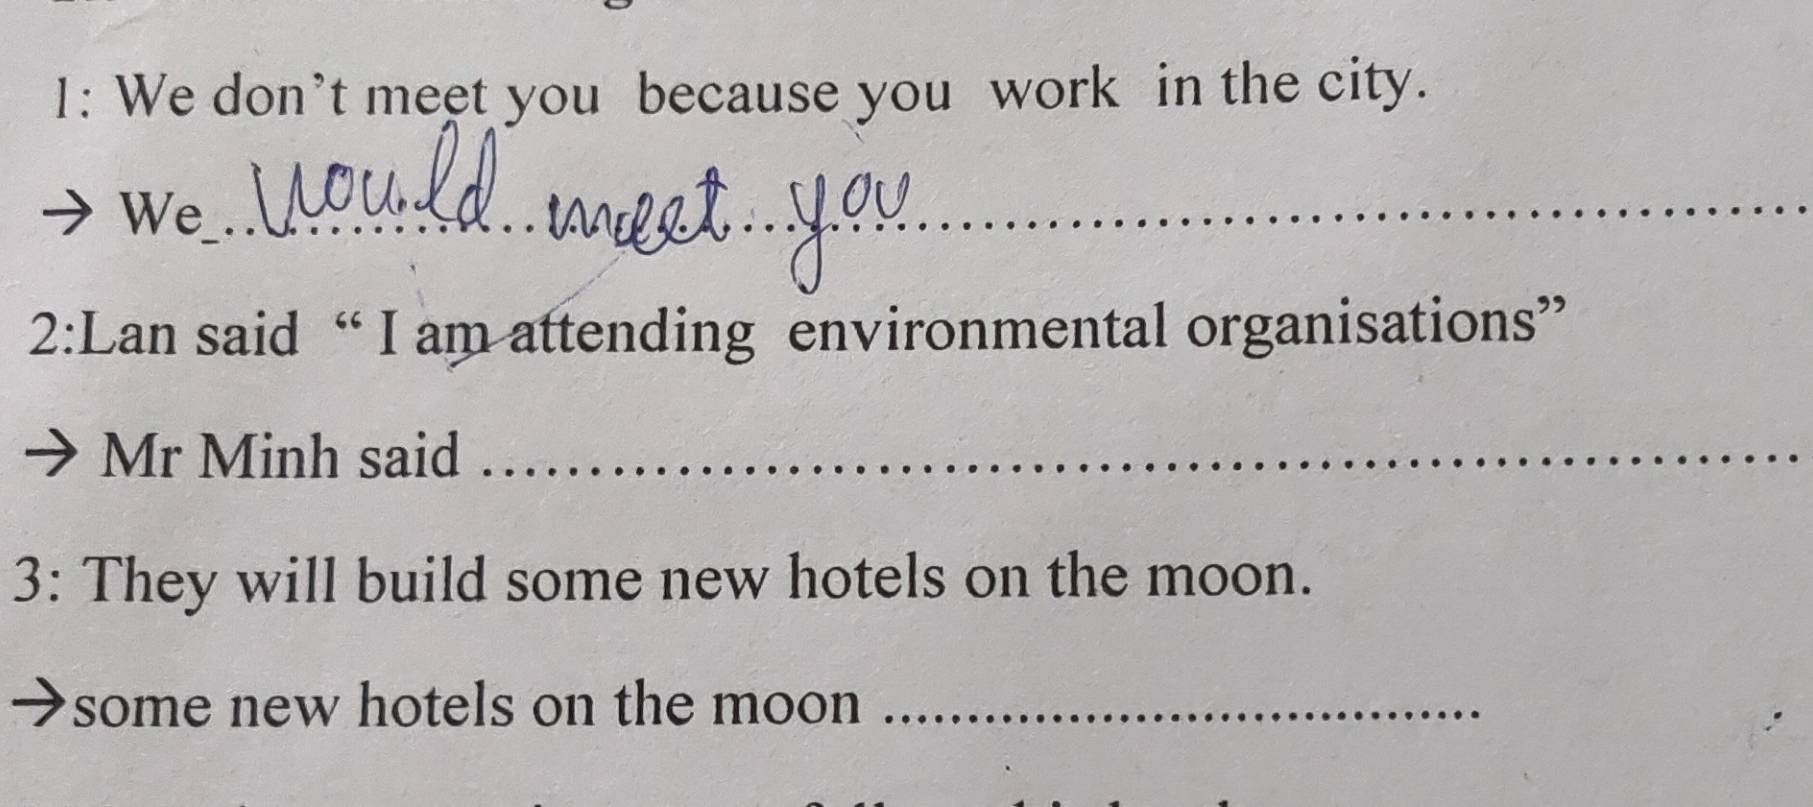 1: We don't meet you because you work in the city.
→ We would meet you
2:Lan said “ I am attending environmental organisations”
→ Mr Minh said ........................................................
3: They will build some new hotels on the moon.
→some new hotels on the moon ....................................